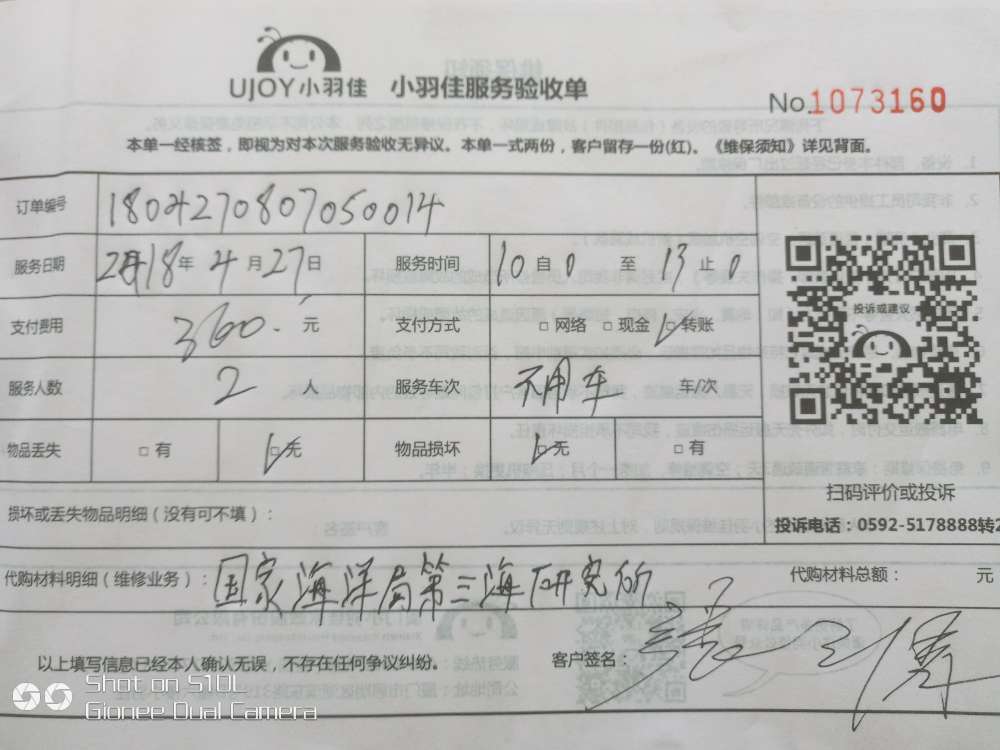 UJOY小羽佳 小羽佳服务验收单
No.1073160
本单一经核签，即视为对本次服务验收无异议。本单一式两份，客户留存一份(红)。《维保须知》详见背面。
订单编号 1804270807050014
服务日期 2018年4月27日 服务时间 10自0至13止0
支付费用 360.元 支付方式 □网络 □现金 ☑转账
投诉或建议
服务人数 2人 服务车次 不用车 车/次
物品丢失 □有 ☑无 物品损坏 ☑无 □有
扫码评价或投诉
损坏或丢失物品明细（没有可不填）：
投诉电话：0592-5178888转2
代购材料明细（维修业务）：国家海洋局第三海研究所 代购材料总额： 元
以上填写信息已经本人确认无误，不存在任何争议纠纷。 客户签名：
Shot on S10L
Gionee Dual Camera